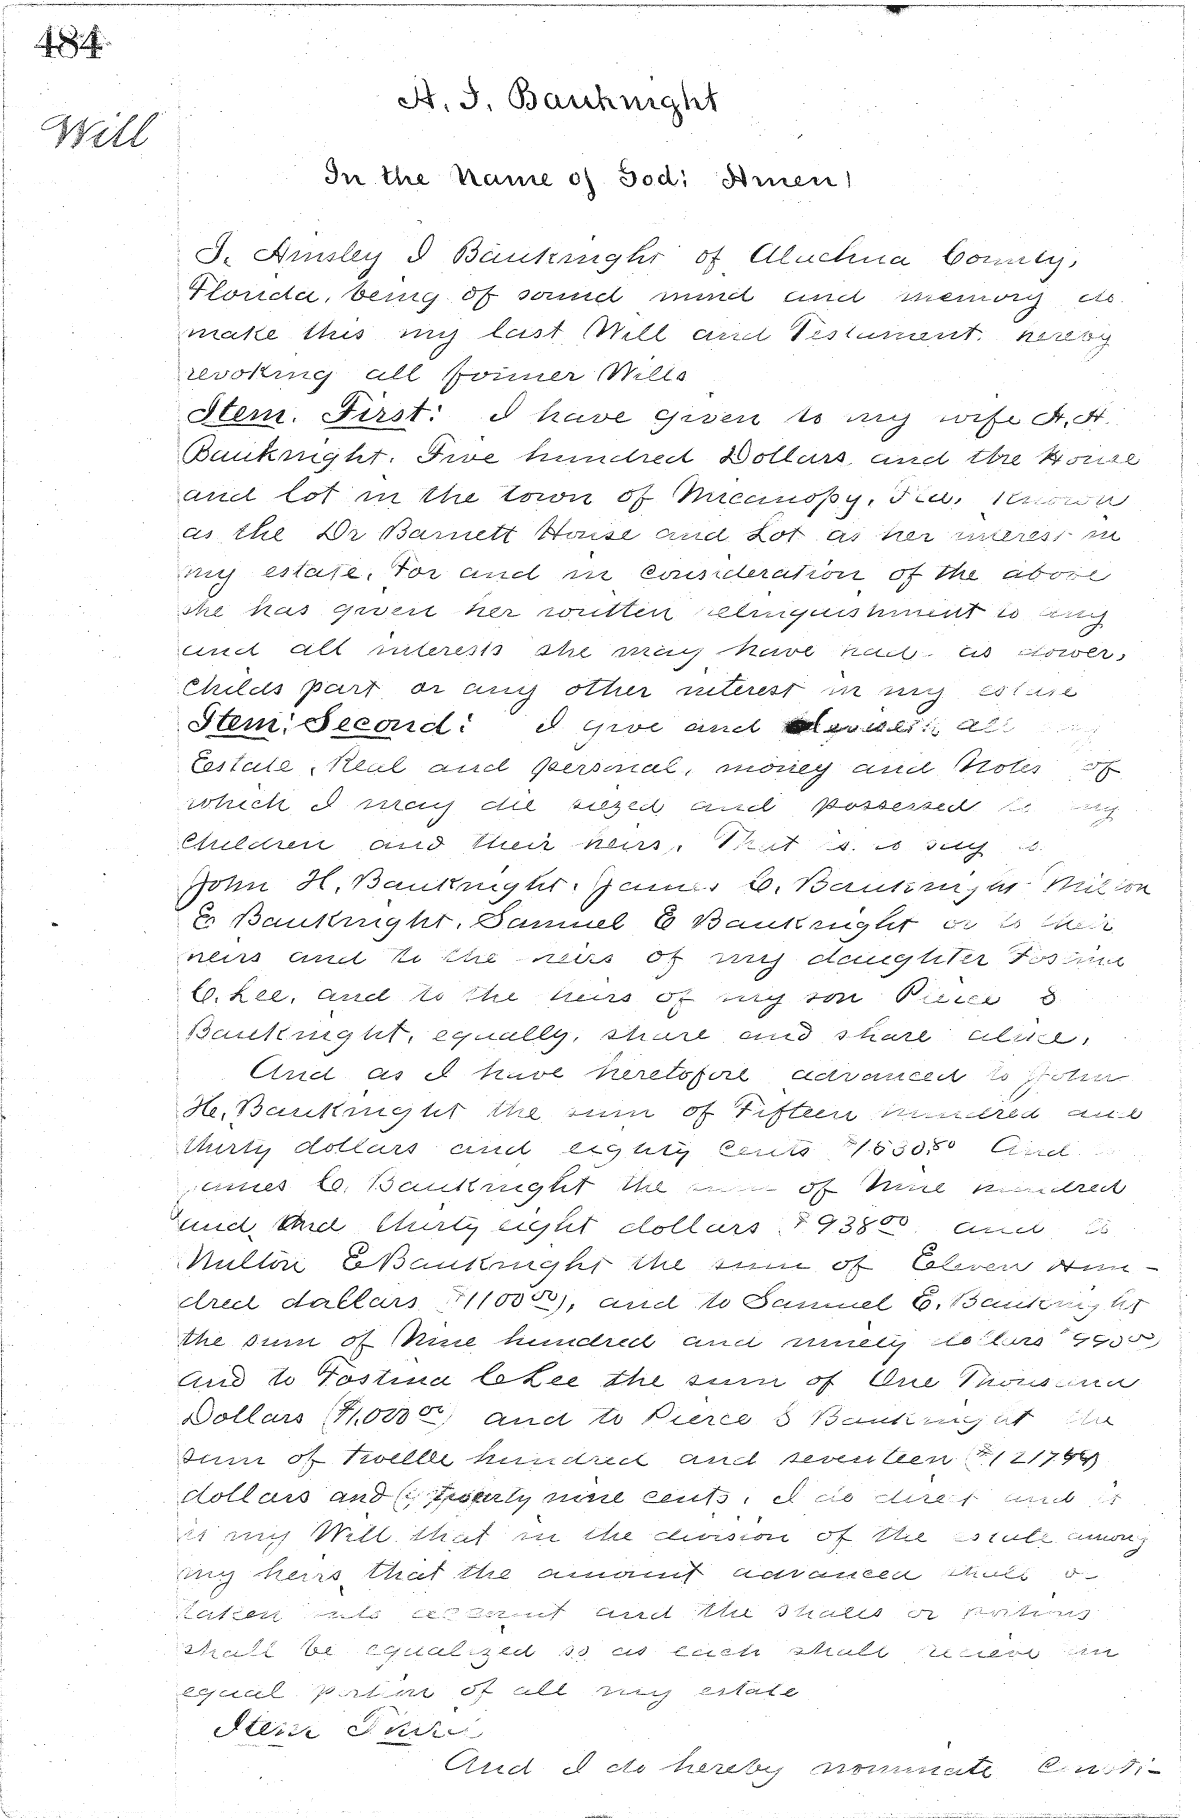 484
A. I. Bauknight
Will
In the Name of God: Amen!
I, Ainsley I Bauknight of Alachua County,
Florida, being of sound mind and memory do
make this my last Will and Testament. hereby
revoking all former Wills
Item. First: I have given to my wife A. A.
Bauknight. Five hundred Dollars, and the House
and lot in the town of Micanopy, Fla. known
as the Dr Barnett House and Lot as her interest in
my estate. For and in consideration of the above
she has given her written relinquishment to any
and all interests she may have had as dower,
childs part or any other interest in my estate
Item: Second: I give and all my
Eestate, Real and personal, money and Notes of
which I may die siezed and possessed to my
children and their heirs. That is to say to
John H. Bauknight. James C. Bauknight Milton
E Bauknight. Samuel E Bauknight or to their
heirs and to the heirs of my daughter Fostina
C. Lee, and to the heirs of my son Pierce S
Bauknight, equally, share and share alike.
And as I have heretofore advanced to John
H. Bauknight the sum of Fifteen hundred and
thirty dollars and eighty cents $1530.80 And
James C. Bauknight the sum of Nine hundred
and and thirty eight dollars $93800 and to
Milton E Bauknight the sum of Eleven Hun-
dred dallars $110000), and to Samuel E. Bauknight
the sum of Nine hundred and ninety dollars $99000
and to Fostina C Lee the sum of One Thousand
Dollars ($1,00000) and to Pierce S Bauknight the
sum of twelve hundred and seventeen
dollars and nine cents. I do direct and it
is my Will that in the division of the estate among
my heirs that the amount advanced shall be
taken into account and the shares or portions
shall be equalized so as each shall recieve an
equal portion of all my estate
Item Third
And I do hereby nominate consti-